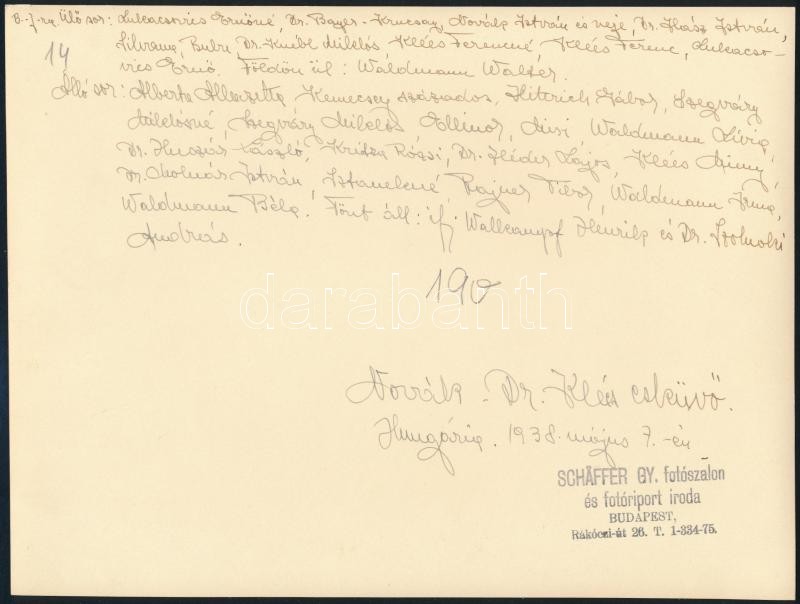 B.-J.-ra Ülő sor: Lukacsovics Ernőné, Dr. Bayer-Krucsay, Novák István és neje, Dr. Hász István,
Silvana, Bubu Dr. Knébl Miklós Kléés Ferencné, Kléés Ferenc, Lukacso-
vics Ernő. Földön ül: Waldmann Walter.
14
Álló sor: Alberta Albazetta, Kemecsey százados, Hittrich Gábor, Szegváry
Miklósné, Szegváry Miklós, Ellinor, Musi, Waldmann Livia,
Dr. Huszár László, Kritza Rózsi, Dr. Héder Lajos, Kléés Mimy,
Dr. Molnár István, Sztanekné, Rajner Tibor, Waldmann Irma,
Waldmann Béla. Fönt áll: ifj. Wallkampf Henrik és Dr. Szolnoki
András.
190
darabanth
Novák - Dr. Kléés esküvő.
Hungária. 1938. május 7.-én
SCHÄFFER GY. fotószalon
és fotóriport iroda
BUDAPEST,
Rákóczi-út 26. T. 1-334-75.